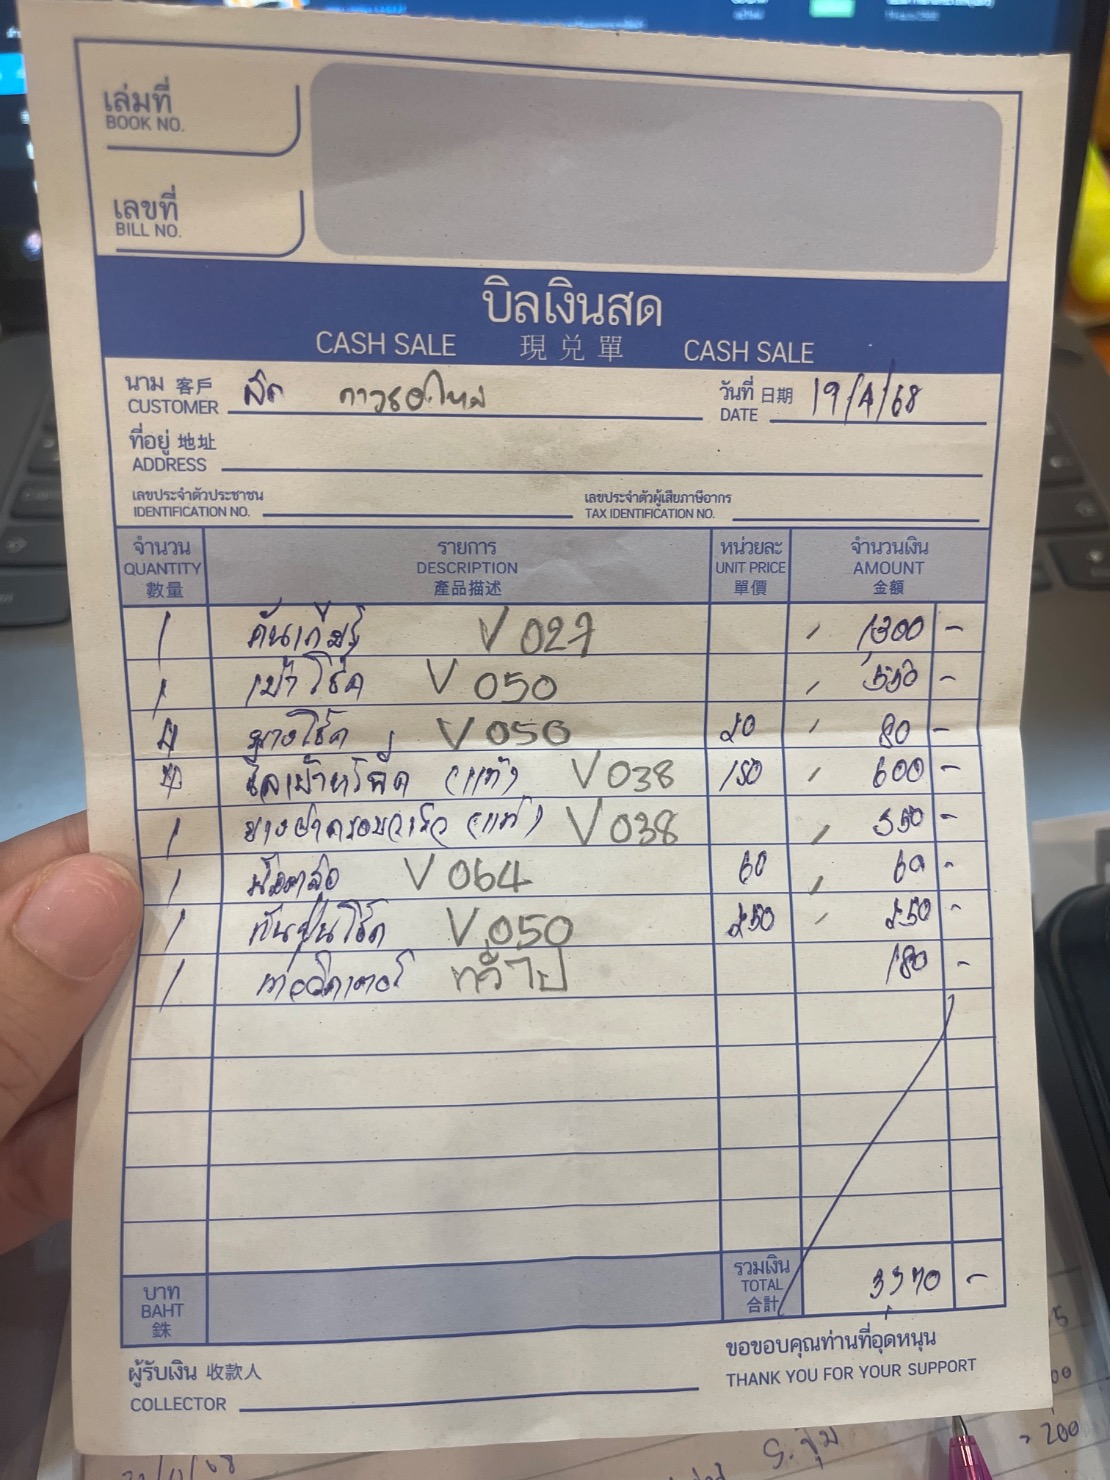 เล่มที่
BOOK NO.
เลขที่
BILL NO.
บิลเงินสด
CASH SALE 現兌單 CASH SALE
นาม 客戶
CUSTOMER
วันที่ 日期 19/4/68
DATE
ที่อยู่ 地址
ADDRESS
เลขประจำตัวประชาชน
IDENTIFICATION NO.
เลขประจำตัวผู้เสียภาษีอากร
TAX IDENTIFICATION NO.
จำนวน รายการ หน่วยละ จำนวนเงิน
QUANTITY DESCRIPTION UNIT PRICE AMOUNT
數量 產品描述 單價 金額
1 คันเกียร์ V 027 1300 -
1 เบ้าโช๊ค V 050 550 -
4 ยางโช๊ค V 050 20 80 -
4 ซีลเบ้าหัวฉีด (แท้) V 038 150 600 -
1 ยางฝาครอบวาล์ว (แท้) V 038 350 -
1 V 064 60 60 -
1 กันฝุ่นโช๊ค V 050 250 250 -
1 ทั่วไป 180 -
รวมเงิน
TOTAL 3370 -
合計
บาท
BAHT
銖
ผู้รับเงิน 收款人
COLLECTOR
ขอขอบคุณท่านที่อุดหนุน
THANK YOU FOR YOUR SUPPORT
200